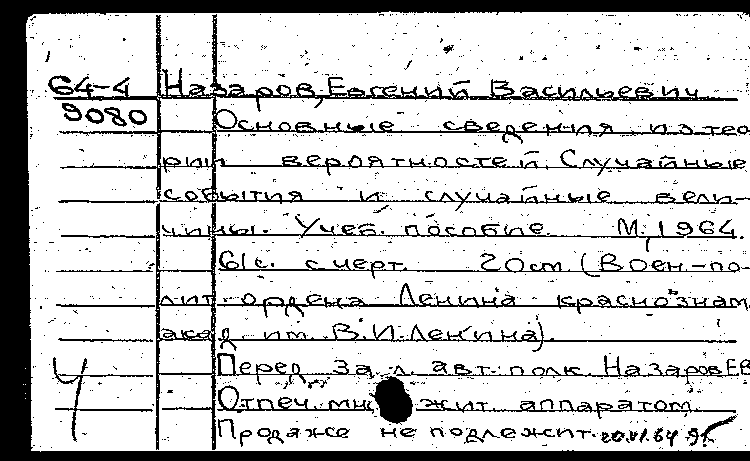 64-4 Назаров, Евгений Васильевич
9080 Основные сведения из тео
рии вероятностей. Случайные
события и случайные вели-
чины. Учеб. пособие. М., 1964.
61с. с черт. 20 см. (Воен-по-
лит. ордена Ленина краснознам
акад им. В.И.Ленина).
Перед за л. авт: полк. Назаров ЕВ
Отпеч. мн жит. аппаратом.
Ч Продаже не подлежит. 20.VI.64